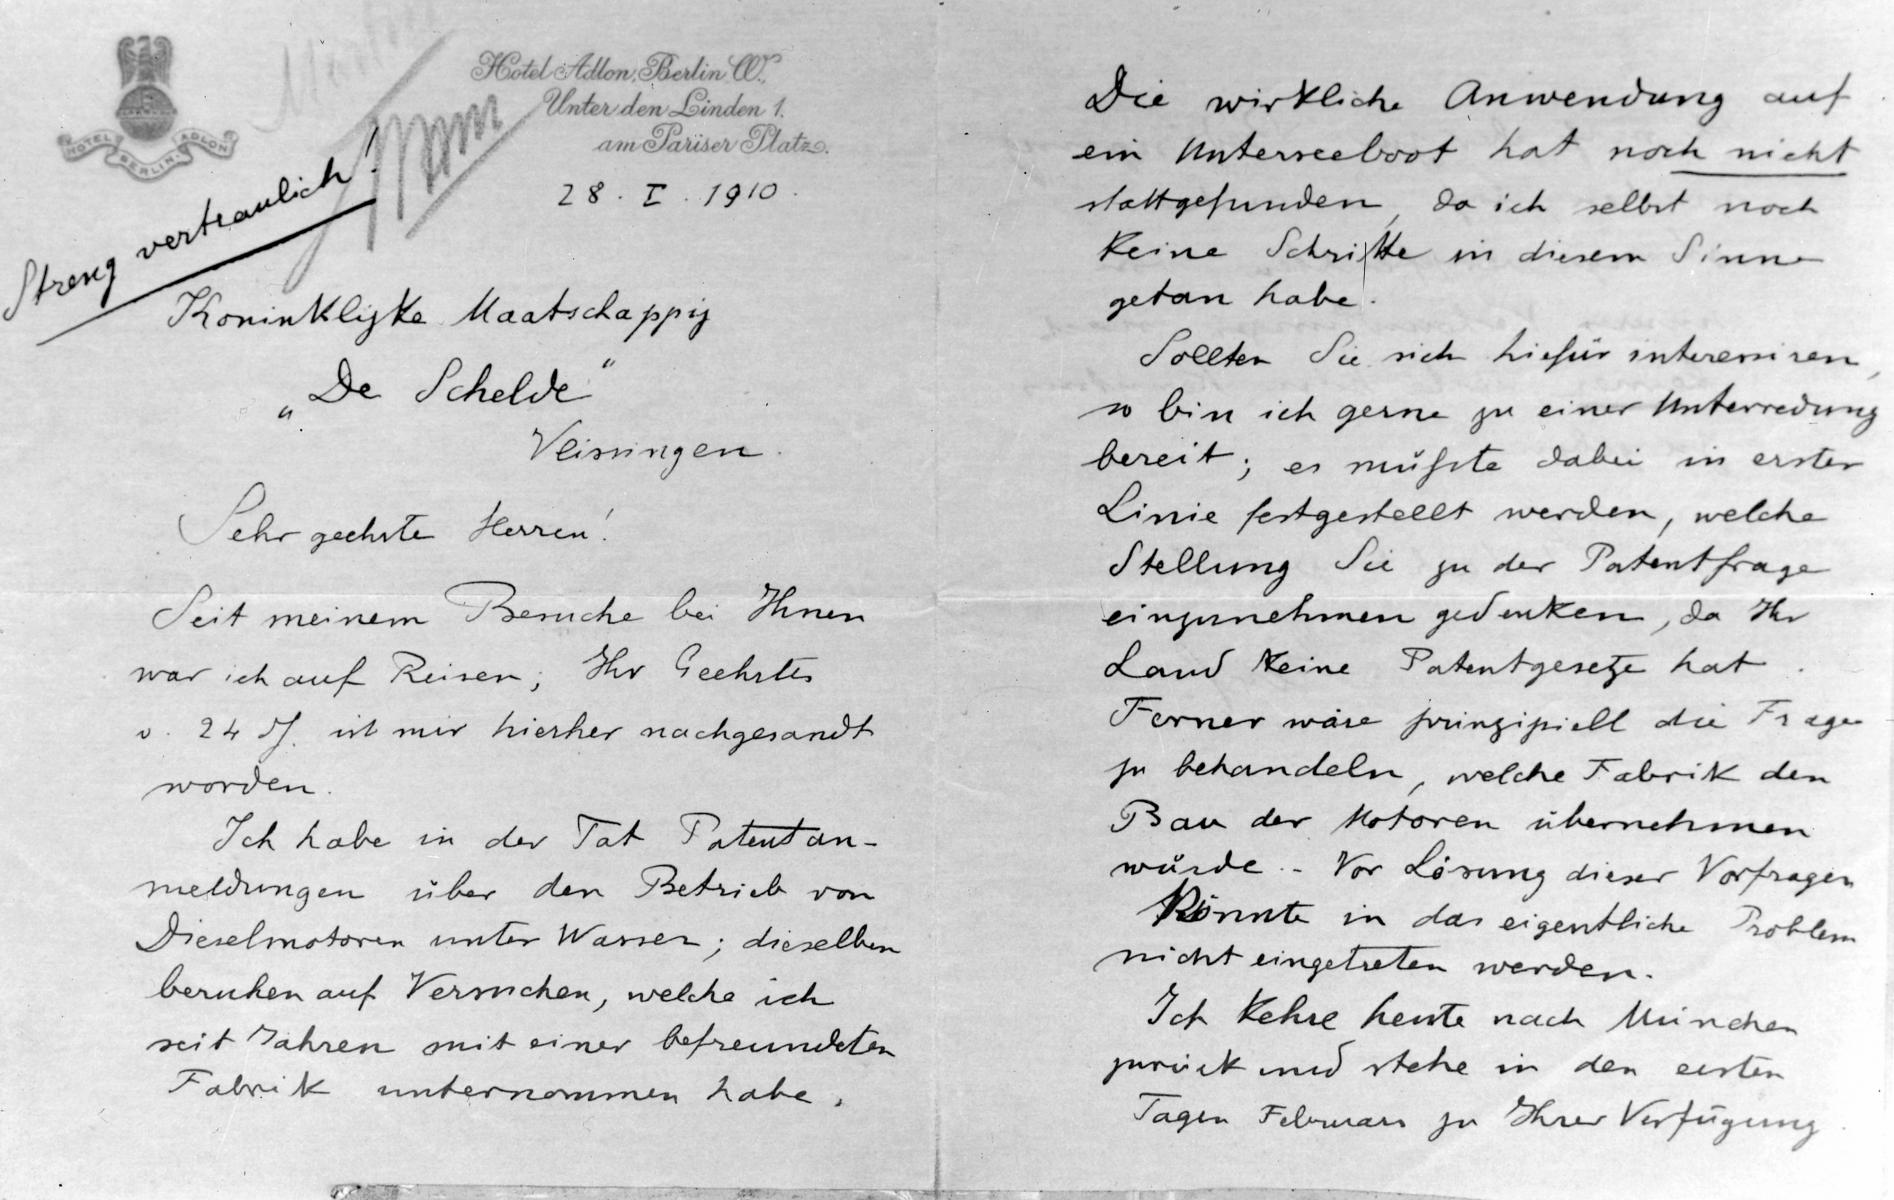 HOTEL ADLON
BERLIN
Hotel Adlon, Berlin W.
Unter den Linden 1.
am Pariser Platz.
28. I. 1910.
Streng vertraulich!
Koninklijke Maatschappij
„De Schelde“
Vlissingen.
Sehr geehrte Herren!
Seit meinem Besuche bei Ihnen
war ich auf Reisen; Ihr Geehrtes
v. 24 d. ist mir hierher nachgesandt
worden.
Ich habe in der Tat Patentan-
meldungen über den Betrieb von
Dieselmotoren unter Wasser; dieselben
beruhen auf Versuchen, welche ich
seit Jahren mit einer befreundeten
Fabrik unternommen habe.
Die wirkliche Anwendung auf
ein Unterseeboot hat noch nicht
stattgefunden, da ich selbst noch
keine Schritte in diesem Sinne
getan habe.
Sollten Sie sich hiefür interessiren,
so bin ich gerne zu einer Unterredung
bereit; es müßte dabei in erster
Linie festgestellt werden, welche
Stellung Sie zu der Patentfrage
einzunehmen gedenken, da Ihr
Land keine Patentgesetze hat.
Ferner wäre prinzipiell die Frage
zu behandeln, welche Fabrik den
Bau der Motoren übernehmen
würde. - Vor Lösung dieser Vorfragen
könnte in das eigentliche Problem
nicht eingetreten werden.
Ich kehre heute nach München
zurück und stehe in den ersten
Tagen Februars zu Ihrer Verfügung.